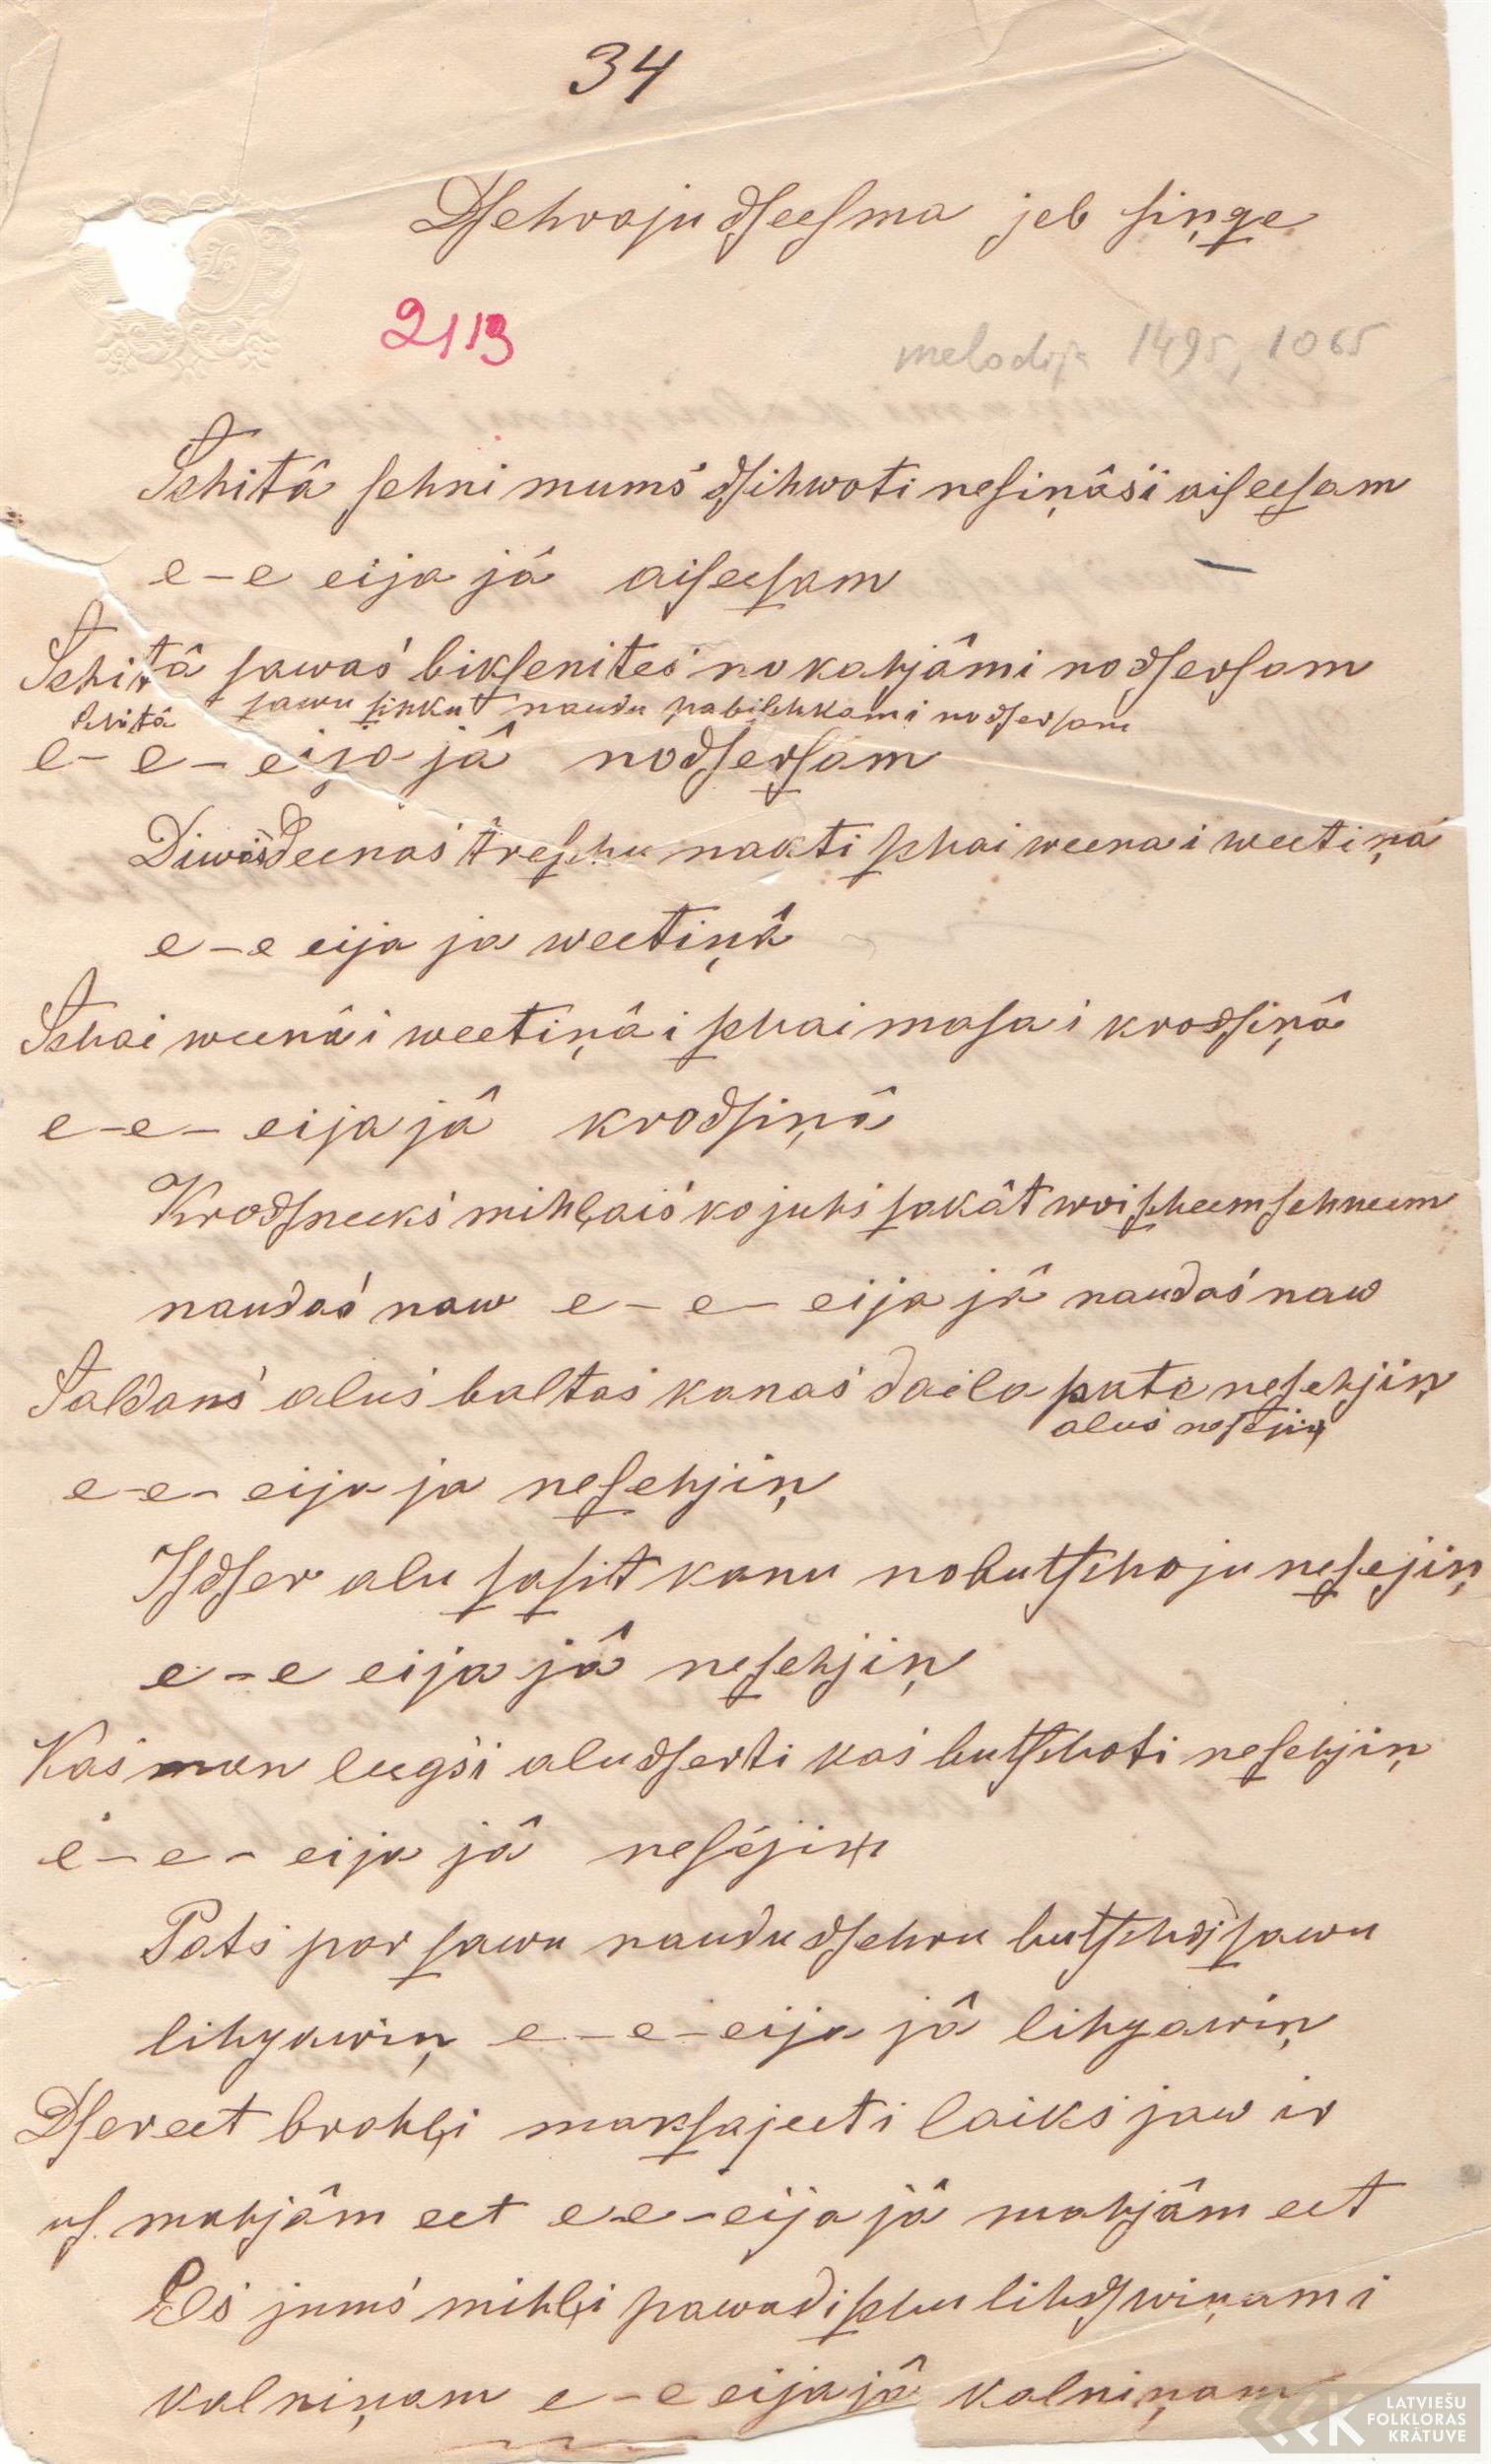 34
Dſehraju dſeeſma jeb ſiņge
2113
melodija 1495, 1065
Schitâ ſehni mums dſihwoti neſiņâsi aiſeeſam
e – e eija jâ aiſeeſam
Schitâ ſawas bikſenites no kahjâmi nodſerſam
ſchitâ ſawu ſinkut naudu pabiſchkami nodſerſam
e – e – eija jâ nodſerſam
Diwâs deenas treſchu nakti ſchai weenai weetiņa
e – e eija ja weetiņâ
Schai weenâi weetiņâi ſchai maſai krodſiņâ
e – e – eija jâ krodſiņâ
Krodſneeks mihļais ko juhs ſakât woi ſcheem ſehneem
naudas naw e – e – eija jâ naudas naw
Saldans alus baltas kanas daila pate neſehjiņ
alus neſejiņ
e – e – eija ja neſehjiņ
Isdſer alu ſaſit kanu nobutſchoju neſejiņ
e – e eija jâ neſehjiņ
Kas man leegsi alu dſerti kas butſchoti neſehjiņ
e – e – eija jâ neſejiņ
Pats par ſawu naudu dſehru butſchoj ſawu
lihgawiņ e – e – eija jâ lihgawiņ
Dſereet brahļi makſajeeti laiks jaw ir
uſ mahjâm eet e-e – eija jâ mahjâm eet
Es jums mihļi pawadiſchu lihdſ wiņami
kalniņam e – e eija jâ kalniņam
LATVIEŠU
FOLKLORAS
KRĀTUVE